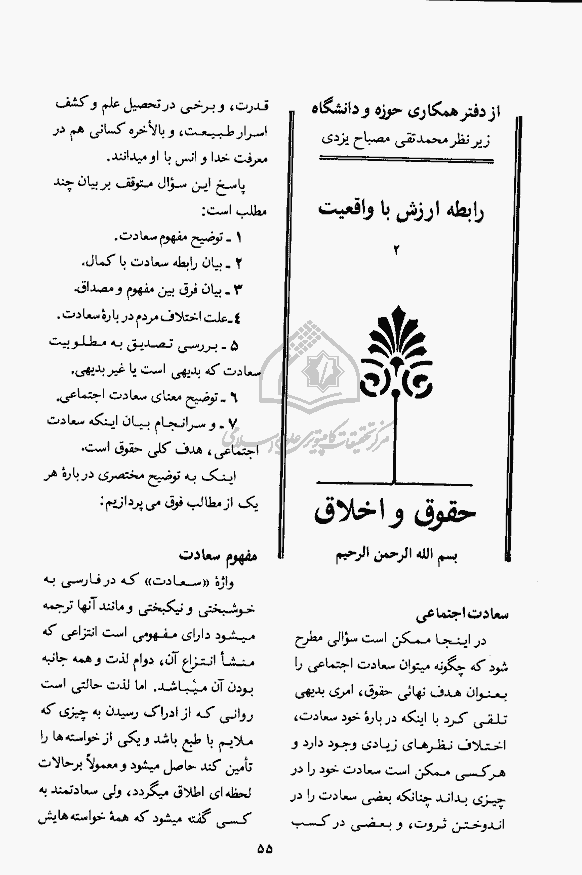 از دفتر همکاری حوزه و دانشگاه
زیر نظر محمدتقی مصباح یزدی
رابطه ارزش با واقعیت
۲
حقوق و اخلاق
بسم الله الرحمن الرحیم
سعادت اجتماعی
در اینجا ممکن است سؤالی مطرح
شود که چگونه میتوان سعادت اجتماعی را
بعنوان هدف نهائی حقوق، امری بدیهی
تلقی کرد با اینکه در بارهٔ خود سعادت،
اختلاف نظرهای زیادی وجود دارد و
هرکسی ممکن است سعادت خود را در
چیزی بداند چنانکه بعضی سعادت را در
اندوختن ثروت، و بعضی در کسب
قدرت، و برخی در تحصیل علم و کشف
اسرار طبیعت، و بالأخره کسانی هم در
معرفت خدا و انس با او میدانند.
پاسخ این سؤال متوقف بر بیان چند
مطلب است:
۱ ـ توضیح مفهوم سعادت.
۲ ـ بیان رابطه سعادت با کمال.
۳ ـ بیان فرق بین مفهوم و مصداق.
٤ ـ علت اختلاف مردم در بارهٔ سعادت.
۵ ـ بررسی تصدیق به مطلوبیت
سعادت که بدیهی است یا غیر بدیهی.
۶ ـ توضیح معنای سعادت اجتماعی.
۷ ـ و سرانجام بیان اینکه سعادت
اجتماعی، هدف کلی حقوق است.
اینک به توضیح مختصری در بارهٔ هر
یک از مطالب فوق می پردازیم:
مفهوم سعادت
واژهٔ «سعادت» که در فارسی به
خوشبختی و نیکبختی و مانند آنها ترجمه
میشود دارای مفهومی است انتزاعی که
منشأ انتزاع آن، دوام لذت و همه جانبه
بودن آن میباشد. اما لذت حالتی است
روانی که از ادراک رسیدن به چیزی که
ملایم با طبع باشد و یکی از خواسته ها را
تأمین کند حاصل میشود و معمولاً بر حالات
لحظه ای اطلاق میگردد، ولی سعادتمند به
کسی گفته میشود که همهٔ خواسته هایش
۵۵
مرکز تحقیقات کامپیوتری علوم اسلامی